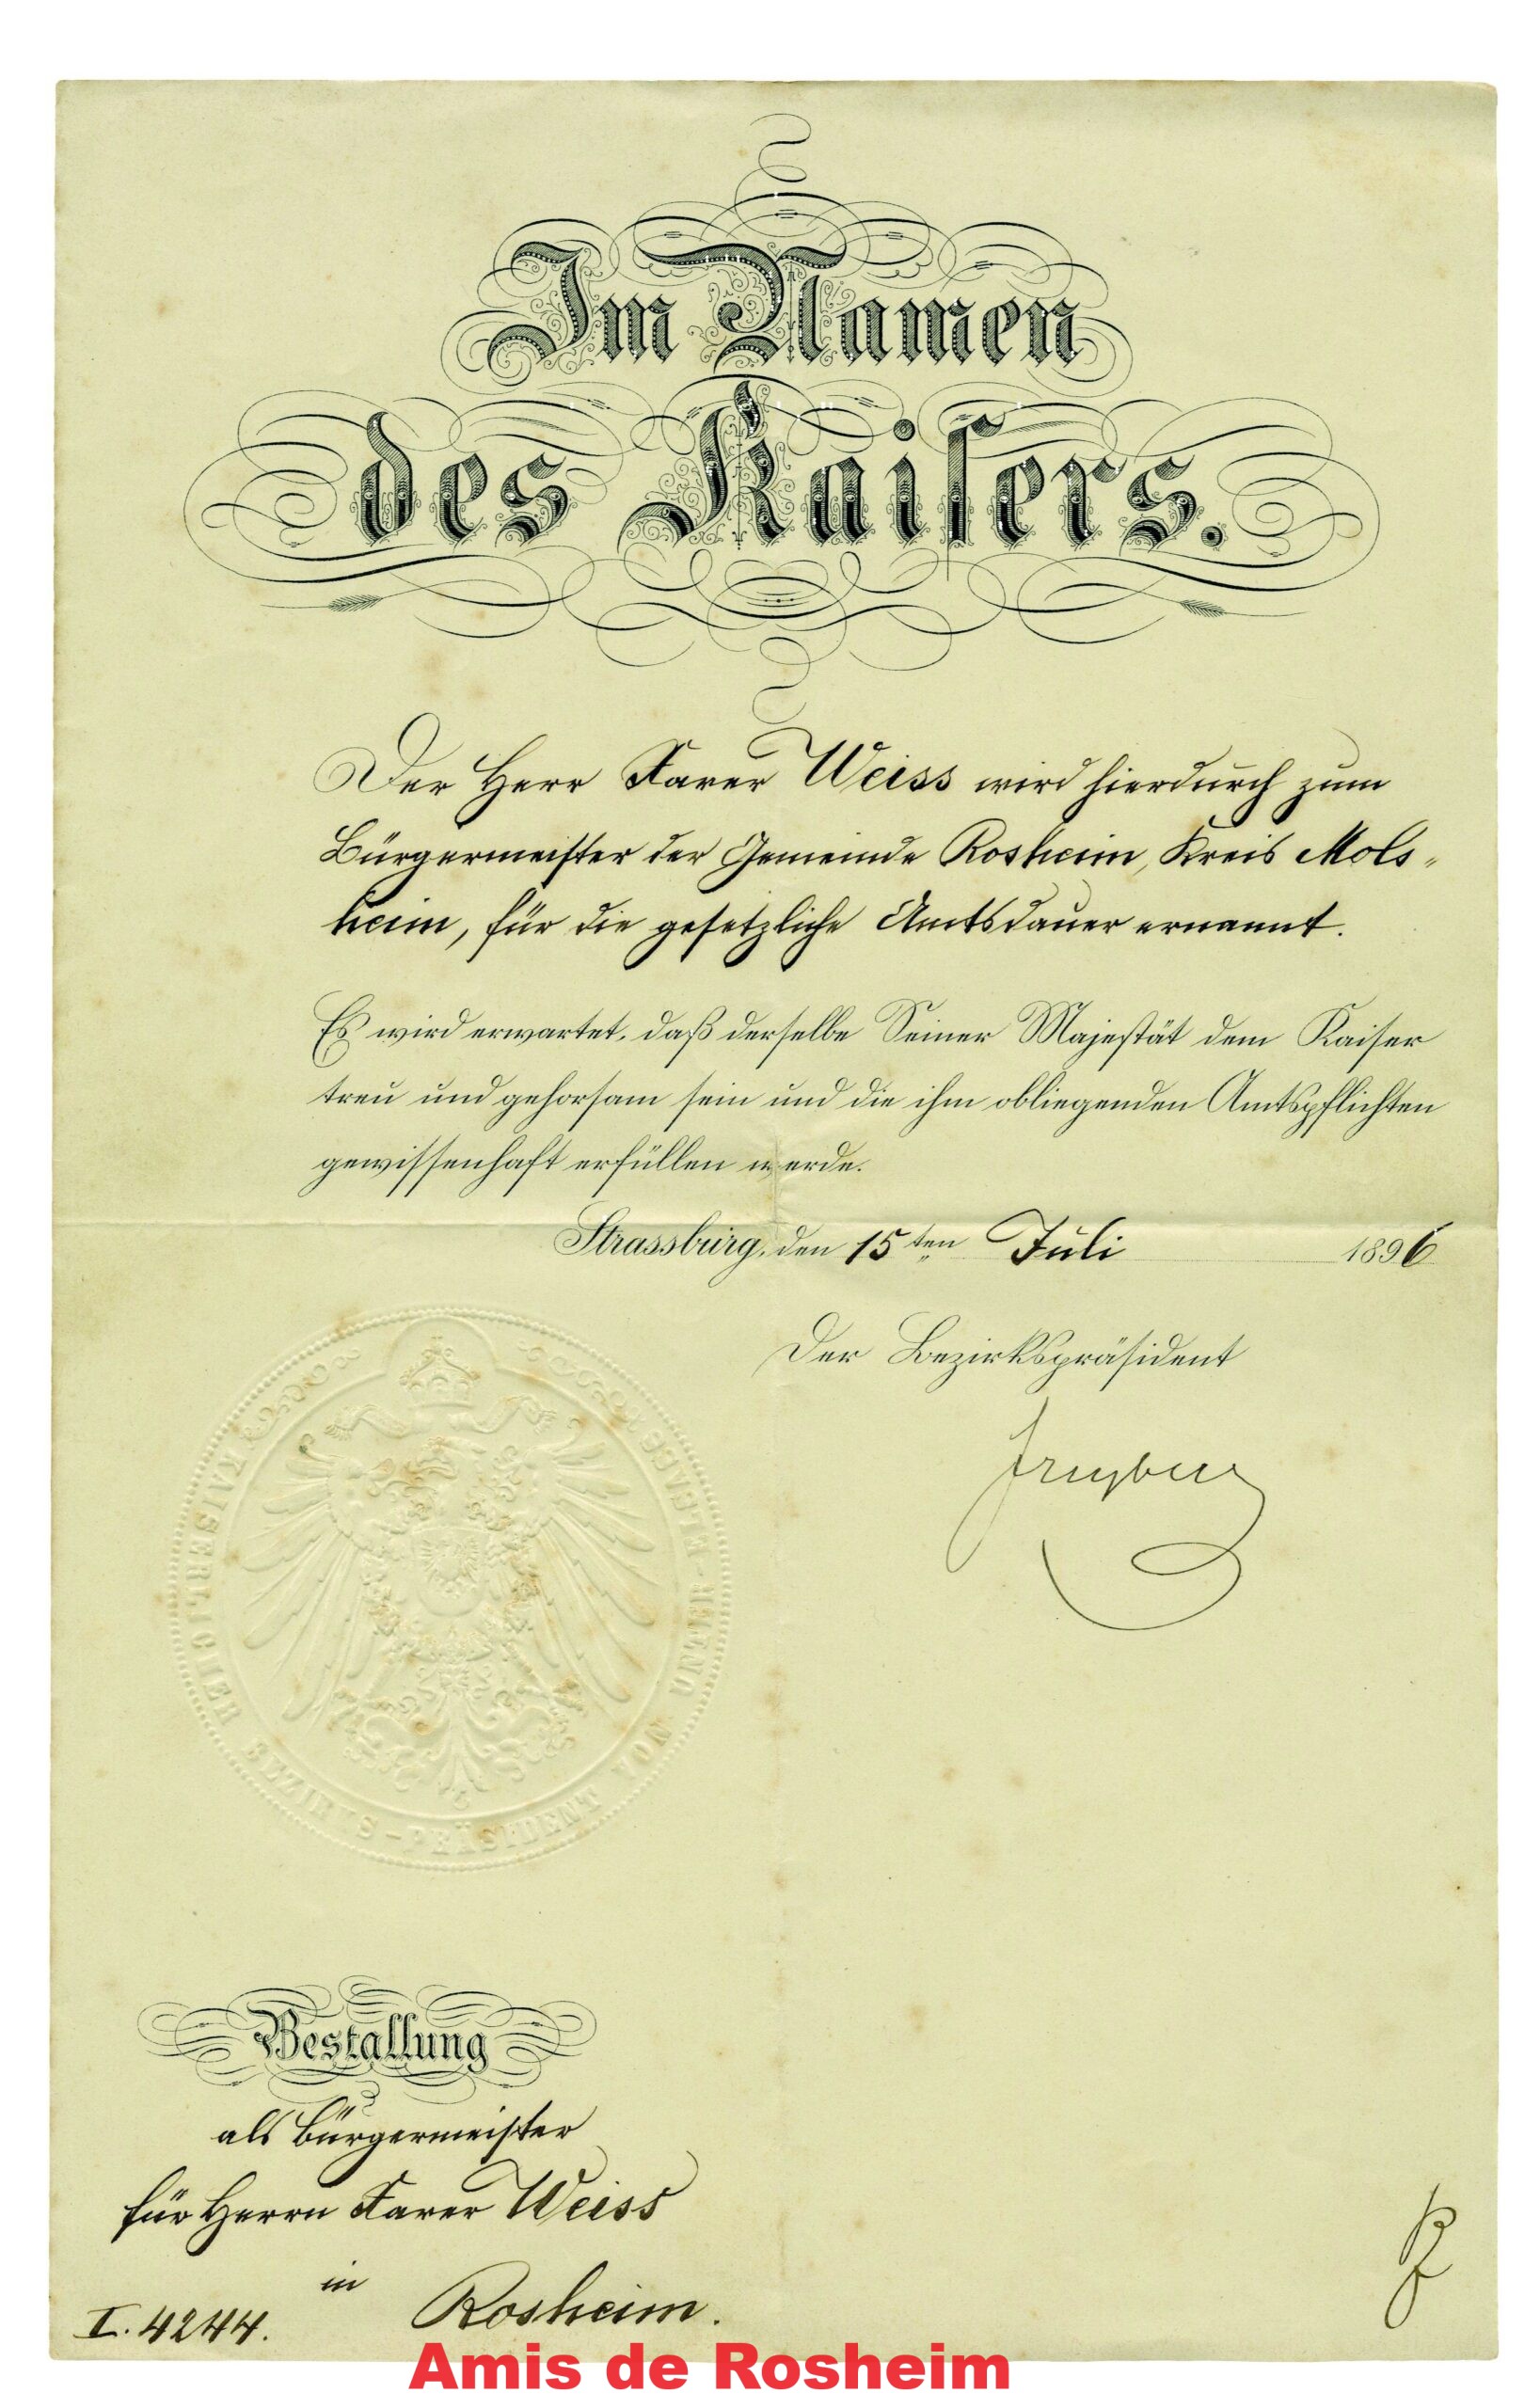 Im Namen
des Kaisers.
Der Herr Xaver Weiss wird hierdurch zum
Bürgermeister der Gemeinde Rosheim, Kreis Mols-
heim, für die gesetzliche Amtsdauer ernannt.
Es wird erwartet, daß derselbe Seiner Majestät dem Kaiser
treu und gehorsam sein und die ihm obliegenden Amtspflichten
gewissenhaft erfüllen werde.
Strassburg, den 15ten Juli 1896
Der Bezirkspräsident
KAISERLICHER BEZIRKS-PRÄSIDENT VON UNTER-ELSASS
Bestallung
als Bürgermeister
für Herrn Xaver Weiss
in
Rosheim.
I. 4244.
Amis de Rosheim